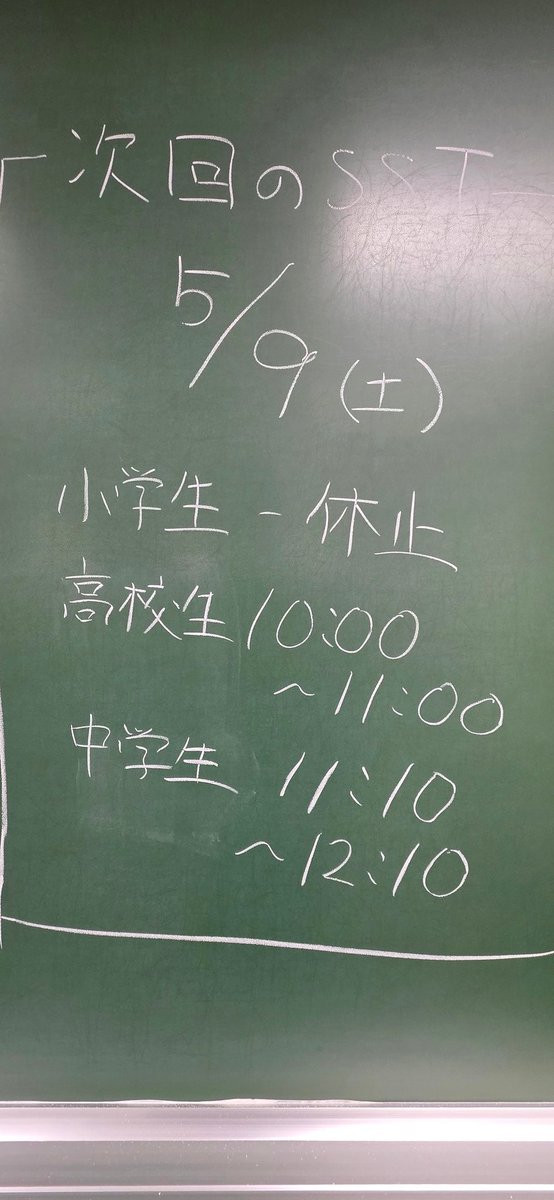 次回のSST
5/9(土)
小学生 - 休止
高校生 10:00
~11:00
中学生 11:10
~12:10